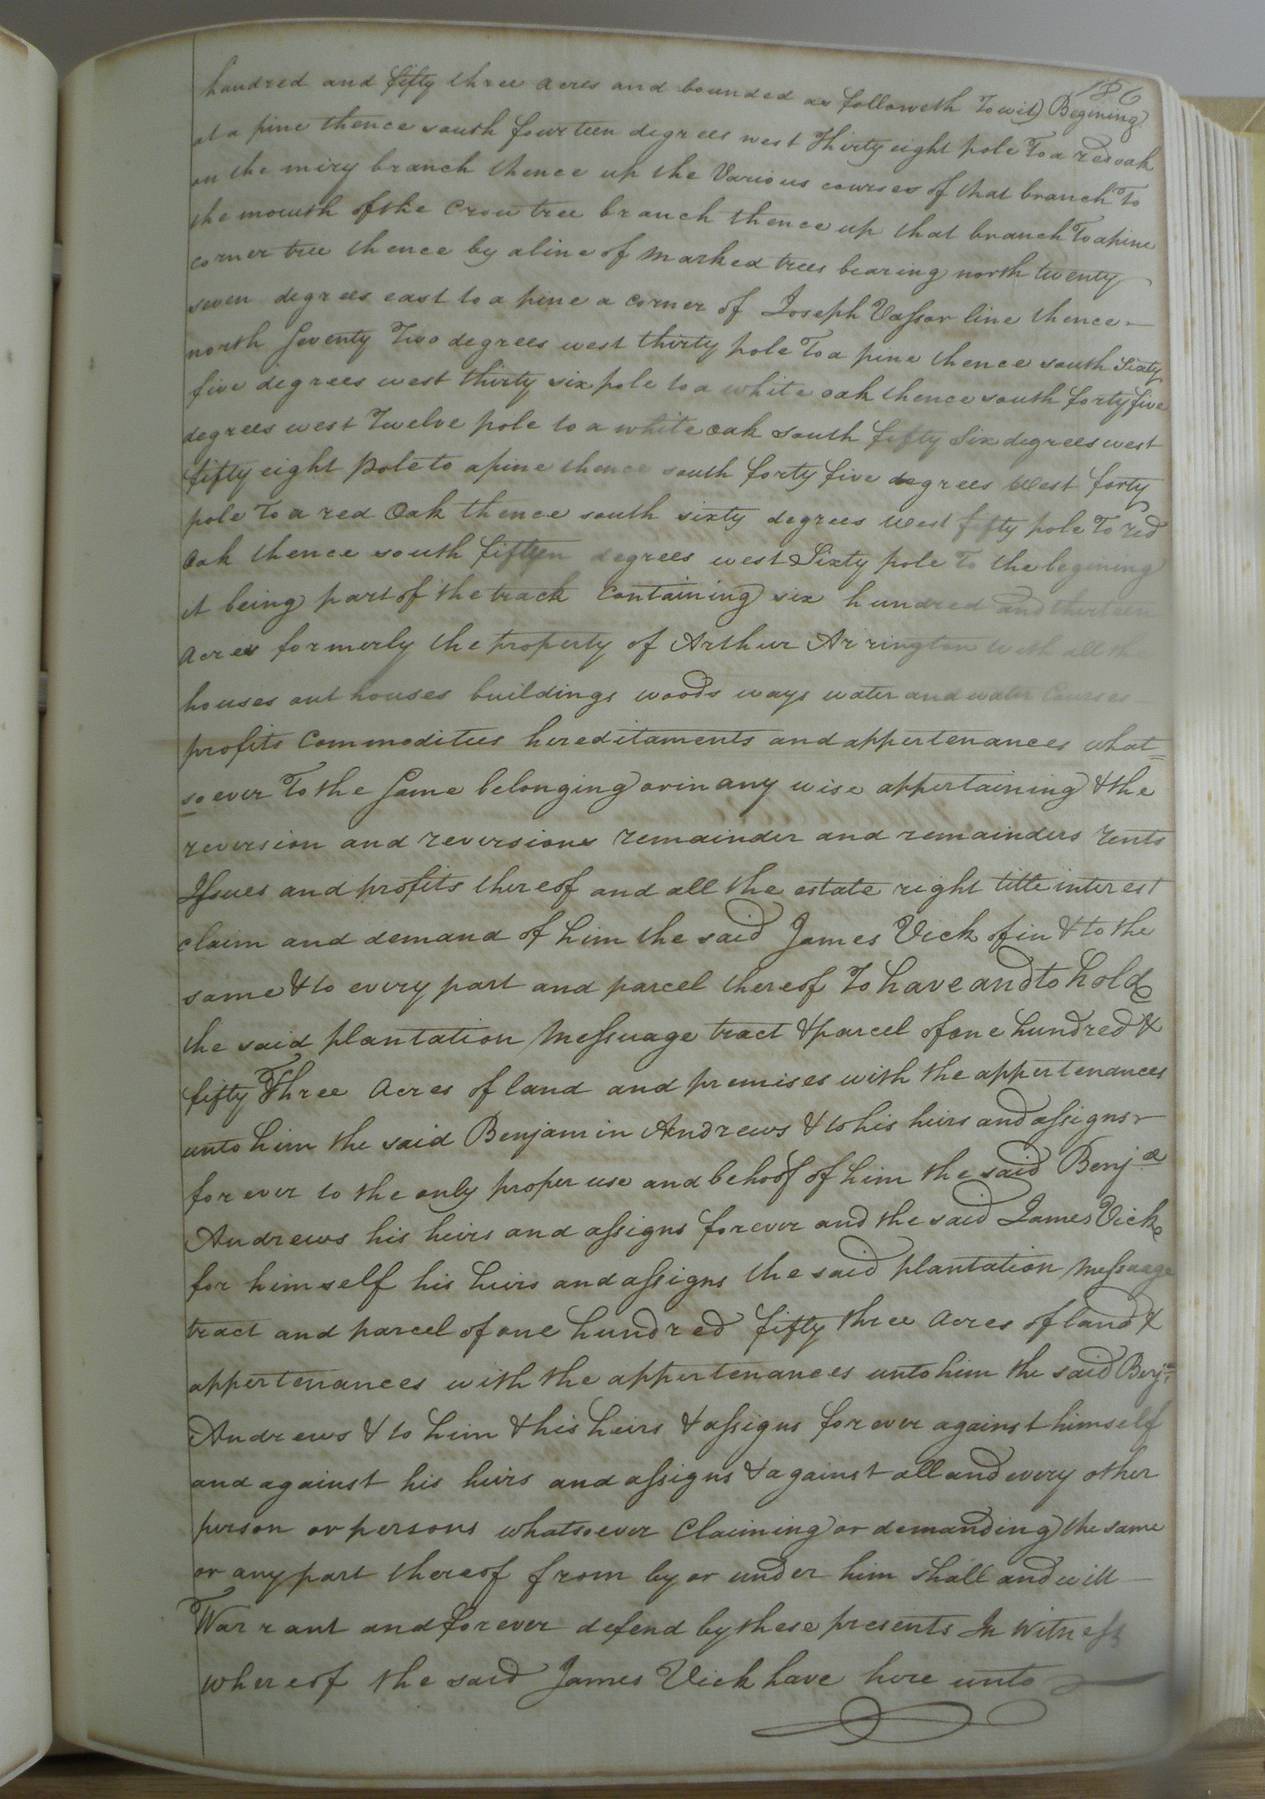 186
hundred and fifty three acres and bounded as followeth To wit) Begining
at a pine thence south fourteen degrees west Thirty eight pole To a red oak
on the miry branch thence up the Various courses of that branch To
the mouth of the Crow tree branch thence up that branch To a pine
corner tree thence by a line of marked trees bearing north twenty
seven degrees east to a pine a corner of Joseph Vassar line thence
north seventy Two degrees west thirty pole To a pine thence south Sixty
five degrees west thirty six pole to a white oak thence south forty five
degrees west Twelve pole to a white oak south fifty Six degrees west
fifty eight pole to a pine thence south forty five degrees West forty
pole To a red Oak thence south sixty degrees West fifty pole To red
Oak thence south fifteen degrees west Sixty pole To the begining
it being part of the track Containing six hundred and thirteen
Acres formerly the property of Arthur Arrington with all the
houses out houses buildings woods ways water and water Courses
profits Commodities hereditaments and appertenances what=
soever To the Same belonging or in any wise appertaining & the
reversion and reversions remainder and remainders rents
Issues and profits thereof and all the estate right title interest
claim and demand of him the said James Vick of in & to the
same & to every part and parcel thereof To have and to hold
the said plantation Messuage tract & parcel of one hundred &
fifty Three Acres of land and premises with the appertenances
unto him the said Benjamin Andrews & to his heirs and assigns
for ever to the only proper use and behoof of him the said Benja
Andrews his heirs and assigns forever and the said James Vick
for himself his heirs and assigns the said plantation Messuage
tract and parcel of one hundred fifty three Acres of land &
appertenances with the appertenances unto him the said Benja
Andrews & to him & his heirs & assigns for ever against himself
and against his heirs and assigns & against all and every other
person or persons whatsoever Claiming or demanding the same
or any part thereof from by or under him shall and will
Warrant and forever defend by these presents In Witness
whereof the said James Vick have here unto